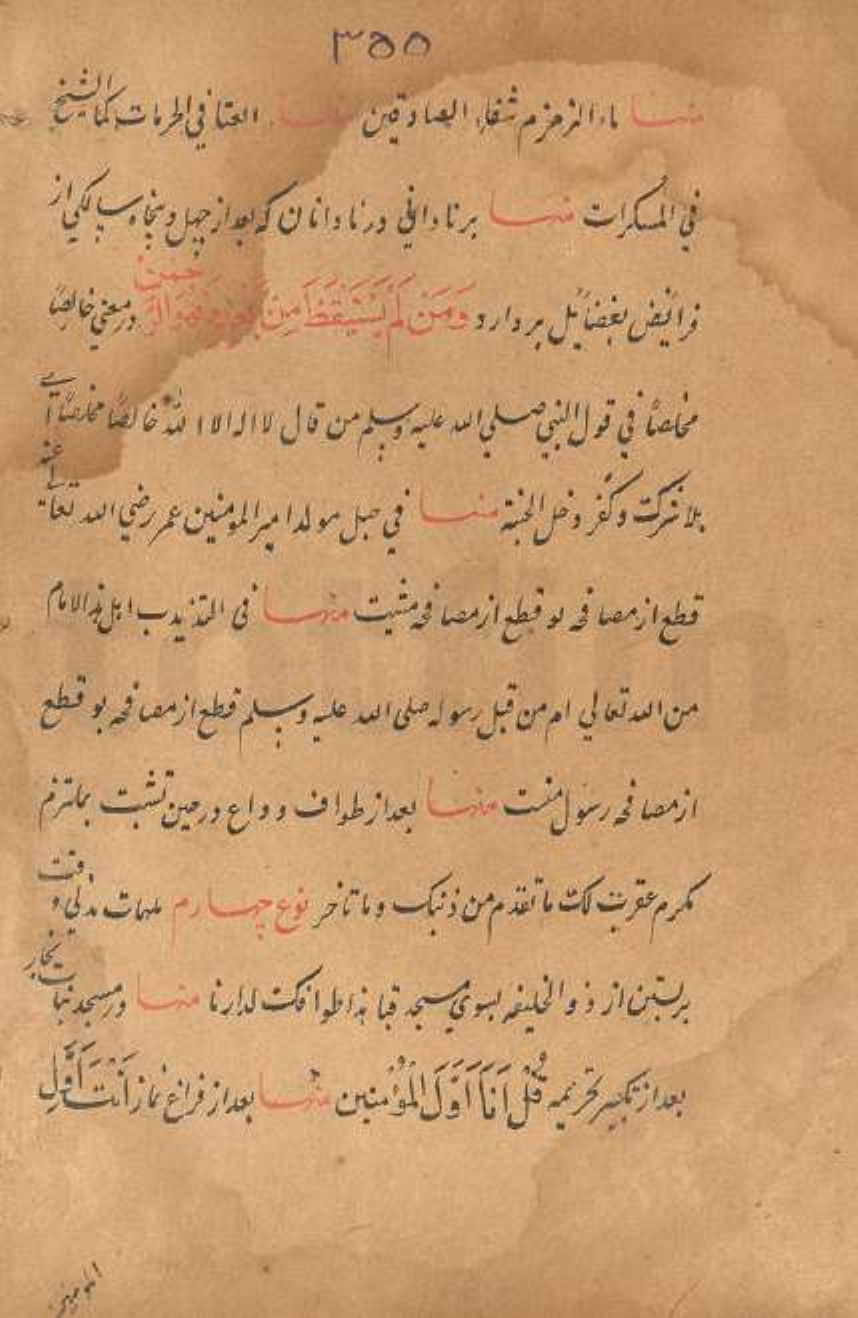 ٣٥٥
منها ماء الزمزم شفاء الصادقين منها العتا في الحرمات كما الشيخ
في المسكرات منها بر نادانی در نادانان که بعد از چهل و پنجاه سالگی از
فرائض بغضائل بر دارد وَمَنْ لَمْ يَسْتَيْقَظْ مِنْ رحمن در معنی خالصًا
مخلصًا في قول النبي صلي الله عليه وسلم من قال لا اله الا الله خالصًا مخلصًا اي
بلا شرکت و کفر دخل الجنة منها في جبل مولد امير المومنين عمر رضي الله تعالے عنه
قطع از مصافحه بو قطع از مصافحه مشیت منها فی التذیدب اهل هذا الامام
من الله تعالي ام من قبل رسوله صلی الله علیه وسلم قطع از مصافحه بو قطع
از مصافحه رسول منست منها بعد از طواف وداع در حین تشبت بملتزم
مکرم غفرت لک ما تقدم من ذنبک و ما تاخر نوع چهارم ملهمات مدنی وقت
بر گشتن از ذو الخلیفه بسوی مسجد قبا هذا طوافک لدارنا منها در مسجد قبا
بعد از تکبیر تحریمه قُلْ اَنَا اَوَّلَ الْمُؤْمنين منها بعد از فراغ نماز اَنْتَ اَوَّل
المومنین